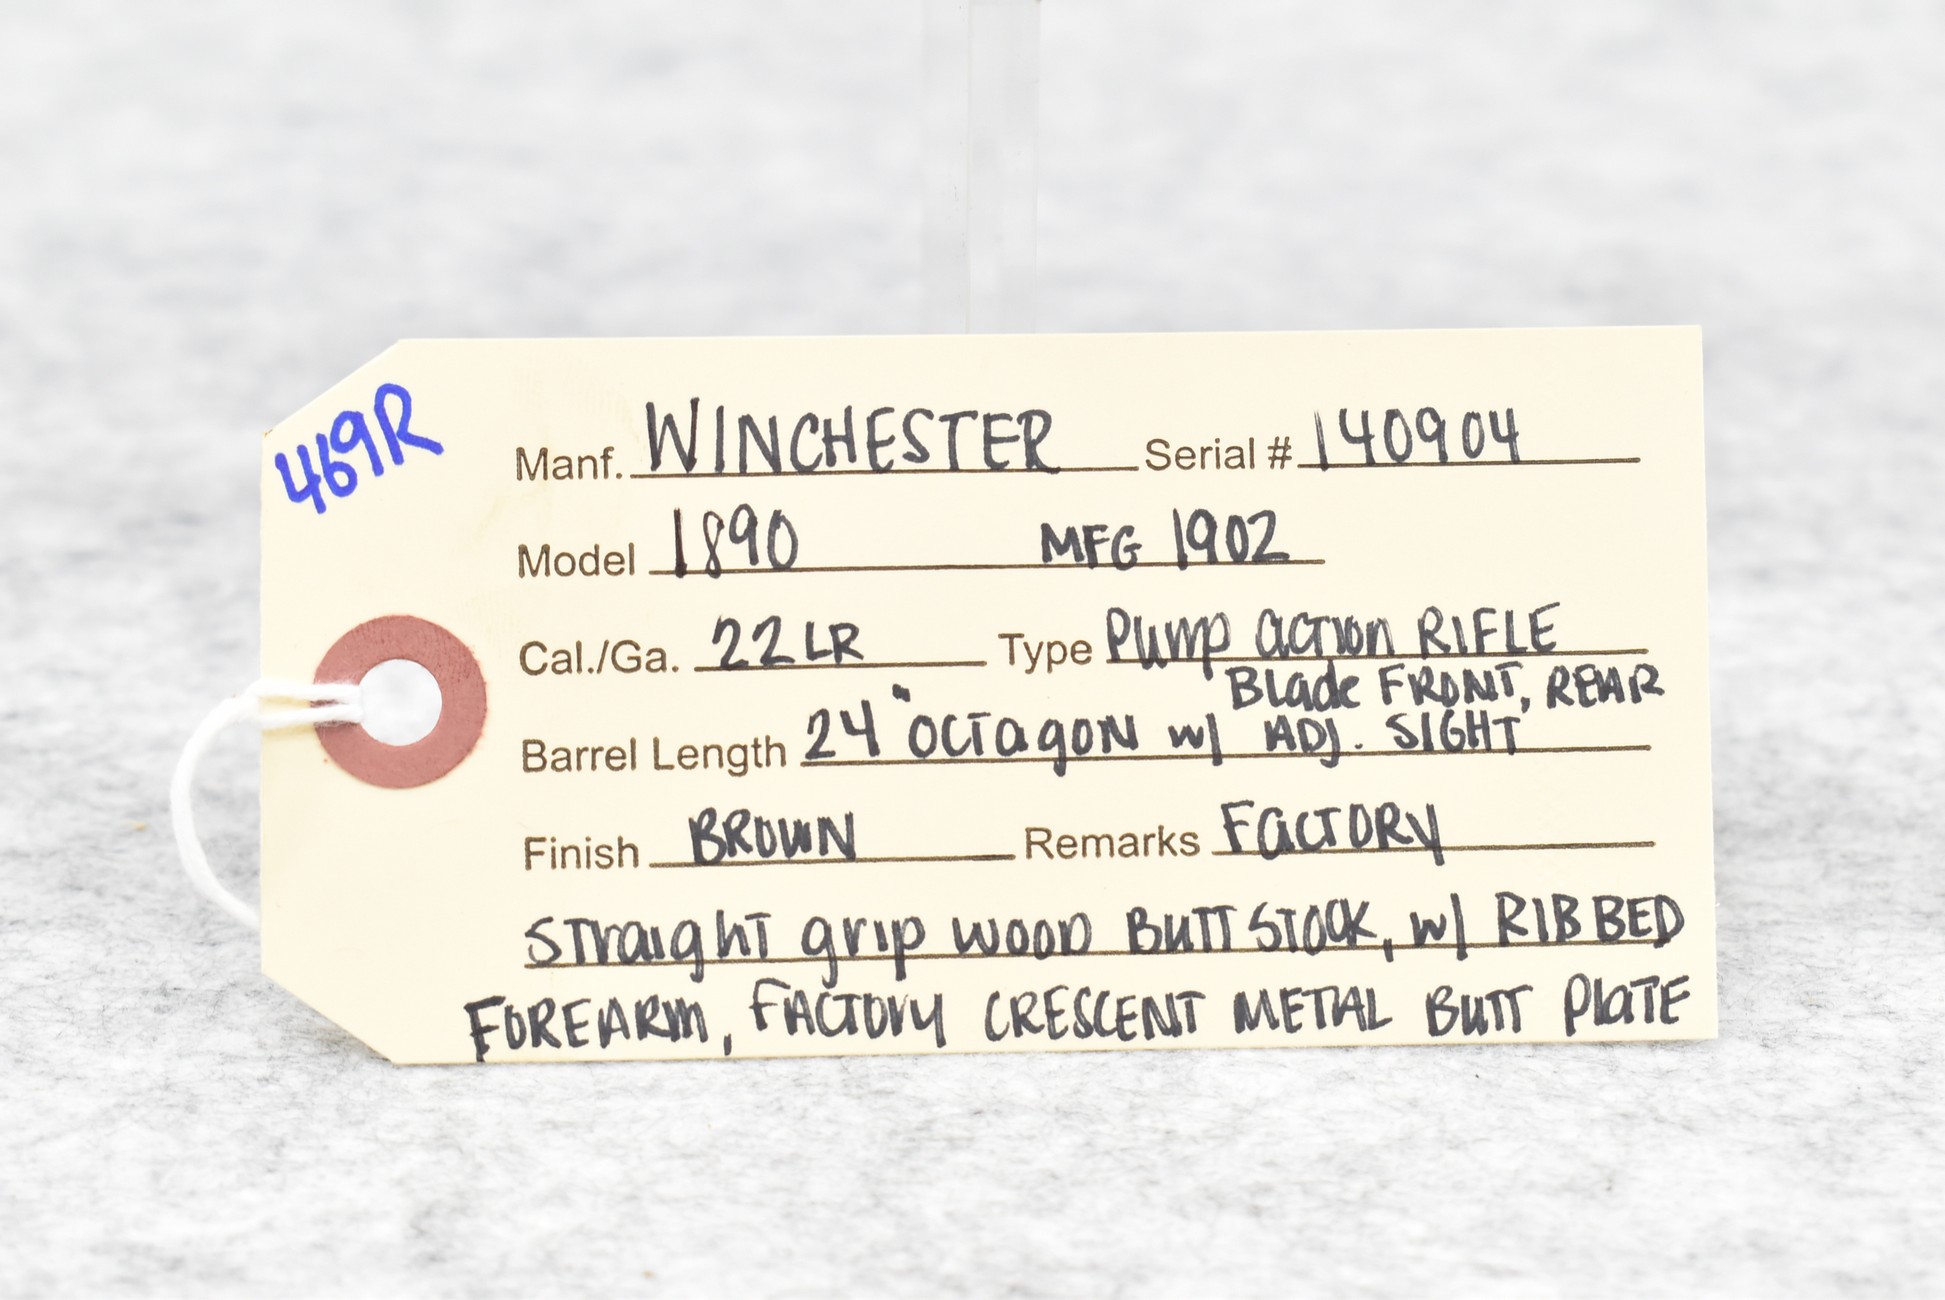 469R
Manf. WINCHESTER Serial # 140904
Model 1890 MFG 1902
Cal./Ga. 22 LR Type Pump action RIFLE
Blade FRONT, REAR
Barrel Length 24" OCTagON w/ ADJ. SIGHT
Finish BROWN Remarks FacTORY
STraighT grip wood BUTTSTOCK, w/ RIBBED
FOREARM, FACTORY CRESCENT METAL BUTT PlaTE